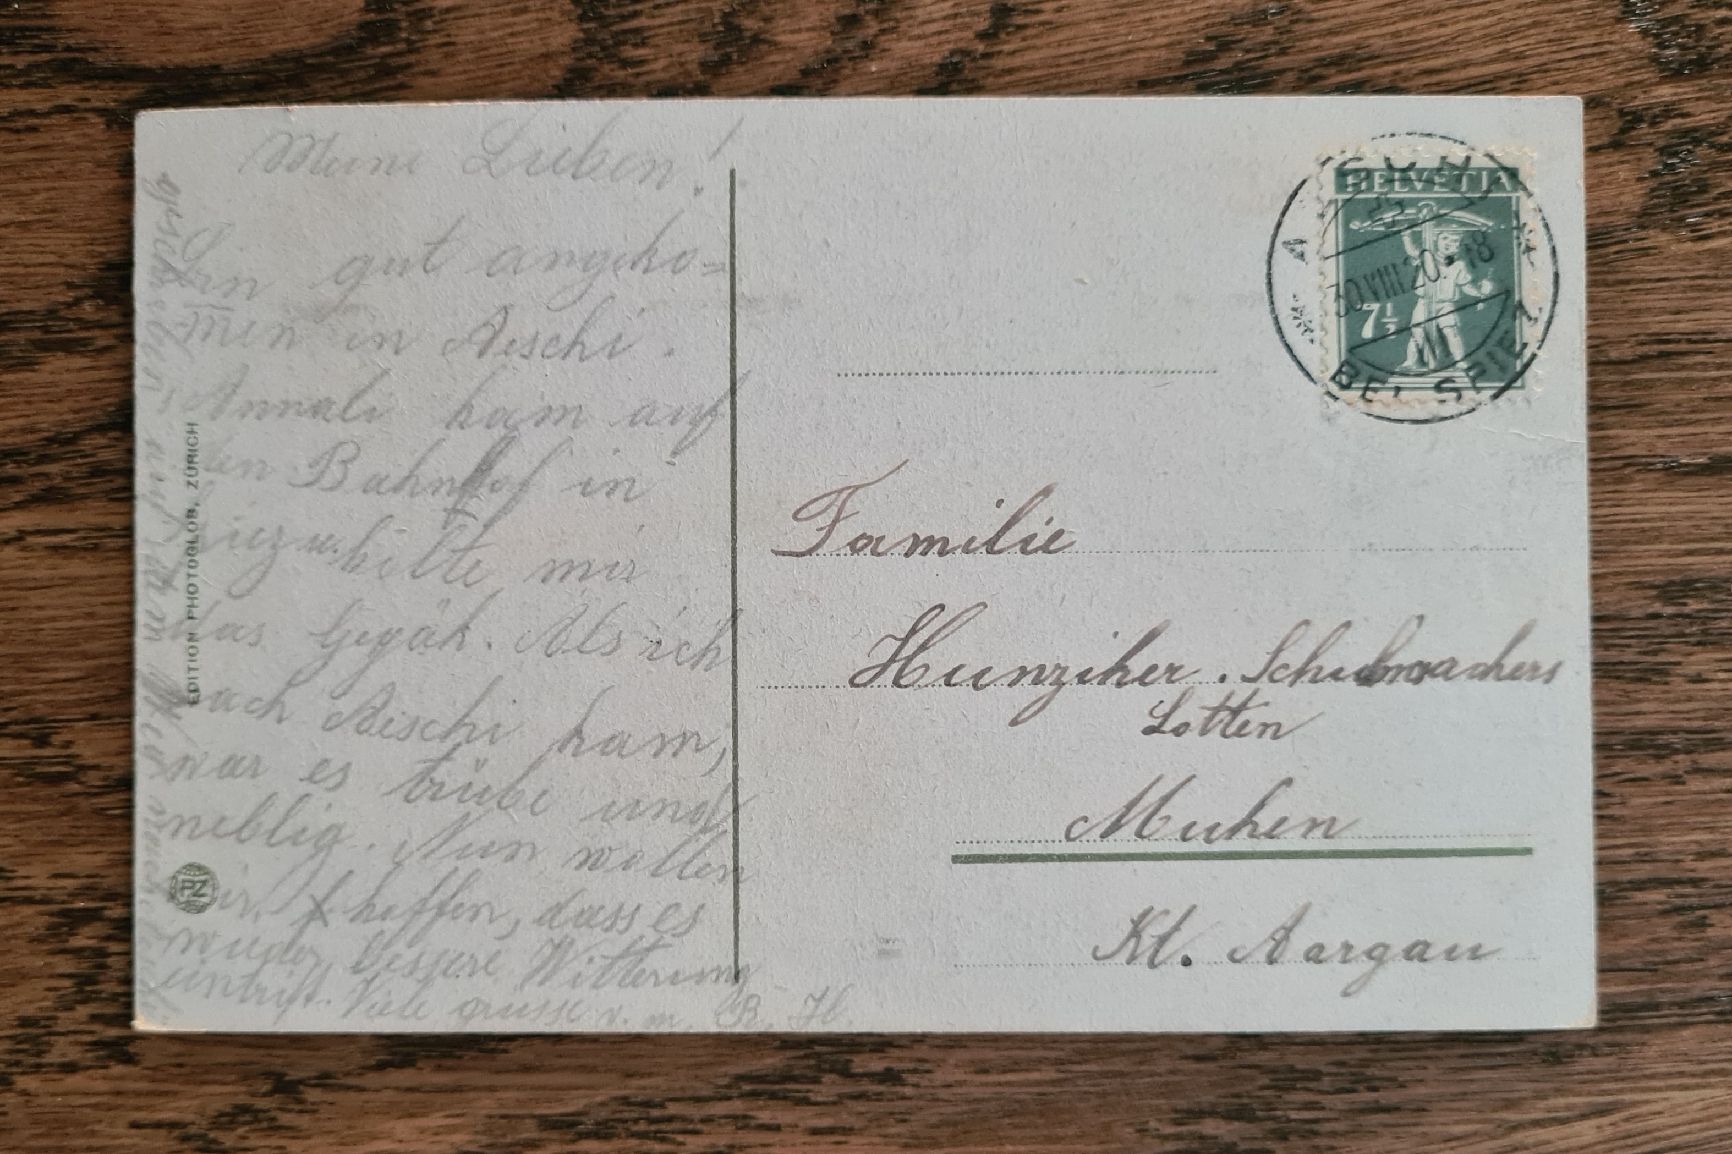 Meine Lieben!
Bin gut angeko=
men in Aeschi.
Annali kam auf
den Bahnhof in
Spiez u. hilte mir
das Gepäk. Als ich
nach Aeschi kam,
war es trübe und
neblig. Nun wollen
wir hoffen, dass es
wieder bessere Witterung
eintrift. Viele grüsse v. m. R. H.
EDITION PHOTOGLOB, ZÜRICH
PZ
HELVETIA
7½
30.VIII.20. 18
BEI SPIEZ
Familie
Hunziker. Schuhmachers
Lotten
Muhen
Kt. Aargau